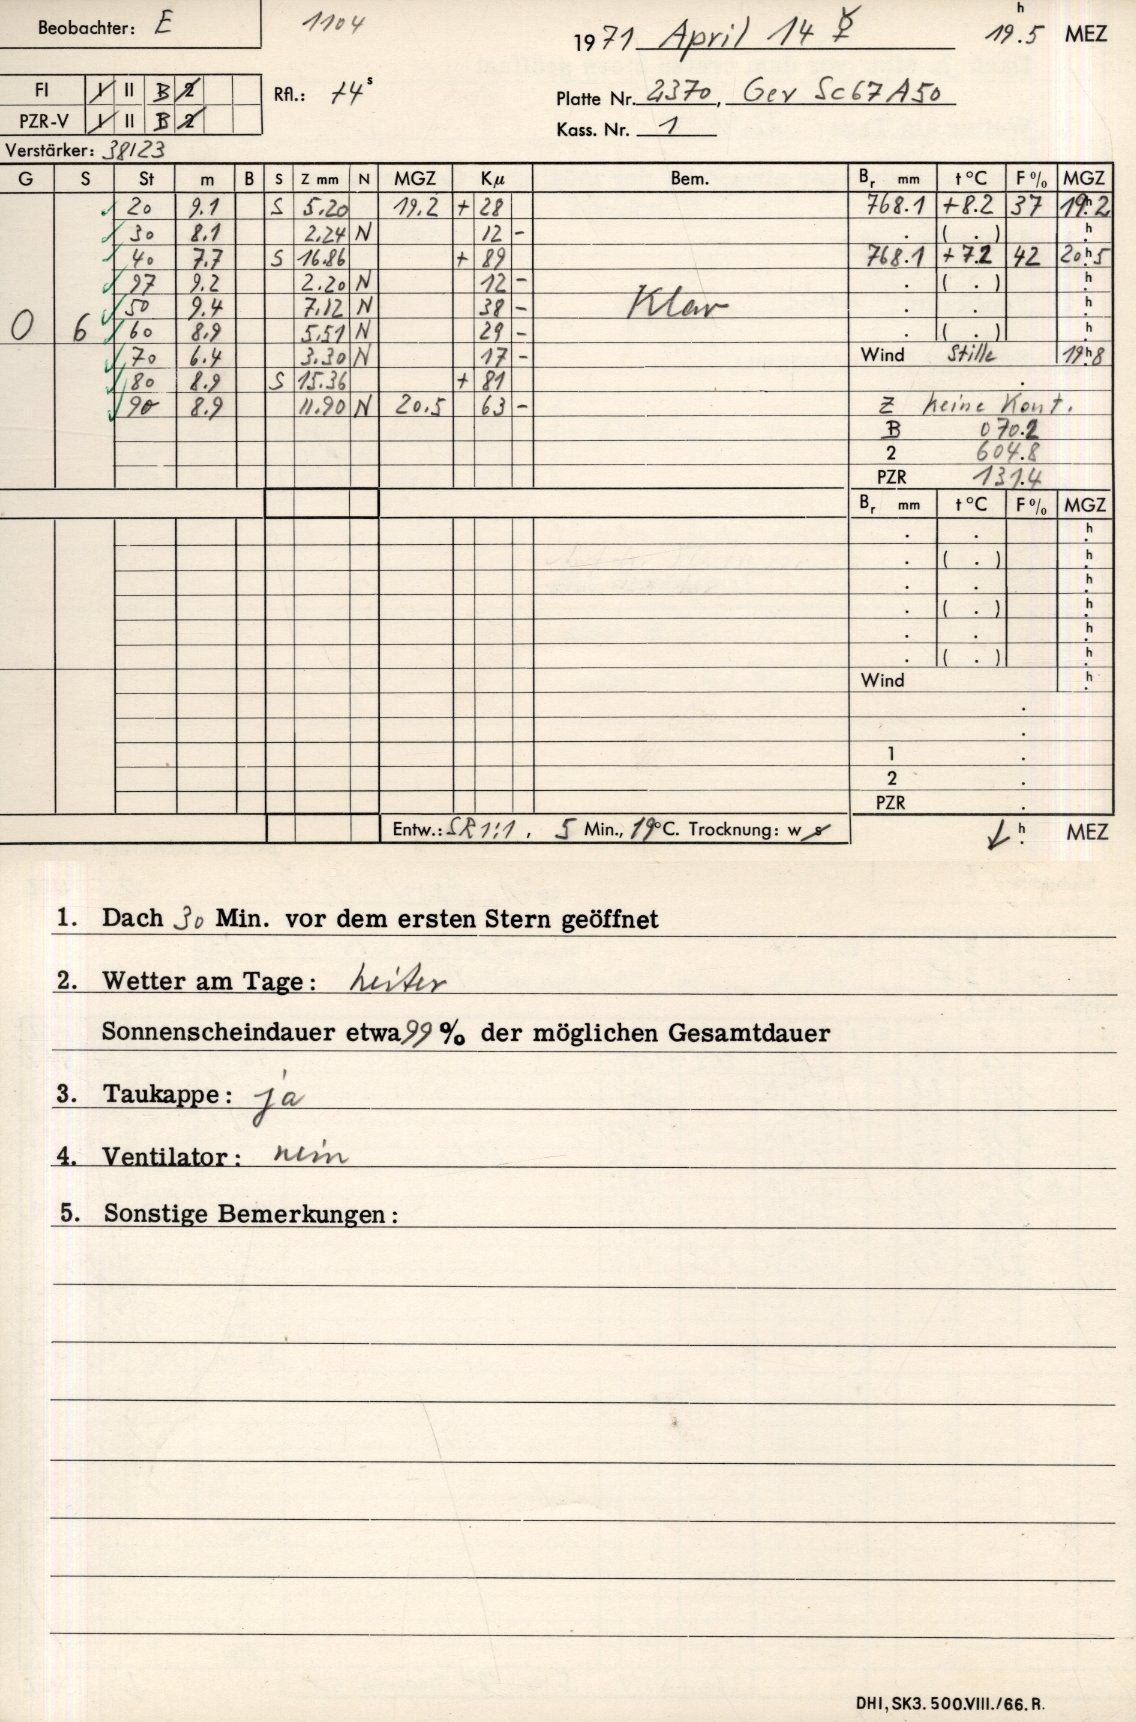 Beobachter: E 1104 1971 April 14 ☿ 19.5 h MEZ
FI I II B 2 Rfl.: +4 s Platte Nr. 2370, Gev Sc67A50
PZR-V I II B 2 Kass. Nr. 1
Verstärker: 38123
G S St m B S Z mm N MGZ Kμ Bem. Br mm t °C F % MGZ
20 9.1 S 5.20 19.2 + 28 768.1 +8.2 37 19h.2
30 8.1 2.24 N 12 - . ( . ) h
40 7.7 S 16.86 + 89 768.1 +7.2 42 20h.5
97 9.2 2.20 N 12 - . ( . ) h
50 9.4 7.12 N 38 - Klar . . h
0 6 60 8.9 5.51 N 29 - . ( . ) h
70 6.4 3.30 N 17 - Wind Stille 19h.8
80 8.9 S 15.36 + 81 .
90 8.9 11.90 N 20.5 63 - Z keine Kont.
B 070.2
2 604.8
PZR 131.4
Br mm t °C F % MGZ
. . h
. ( . ) h
. . h
. ( . ) h
. . h
. ( . ) h
Wind h
.
.
1 .
2 .
PZR .
Entw.: SR 1:1, 5 Min., 19°C. Trocknung: w s h MEZ
1. Dach 30 Min. vor dem ersten Stern geöffnet
2. Wetter am Tage: heiter
Sonnenscheindauer etwa 99 % der möglichen Gesamtdauer
3. Taukappe: ja
4. Ventilator: nein
5. Sonstige Bemerkungen:
DHI, SK3. 500.VIII./66. R.